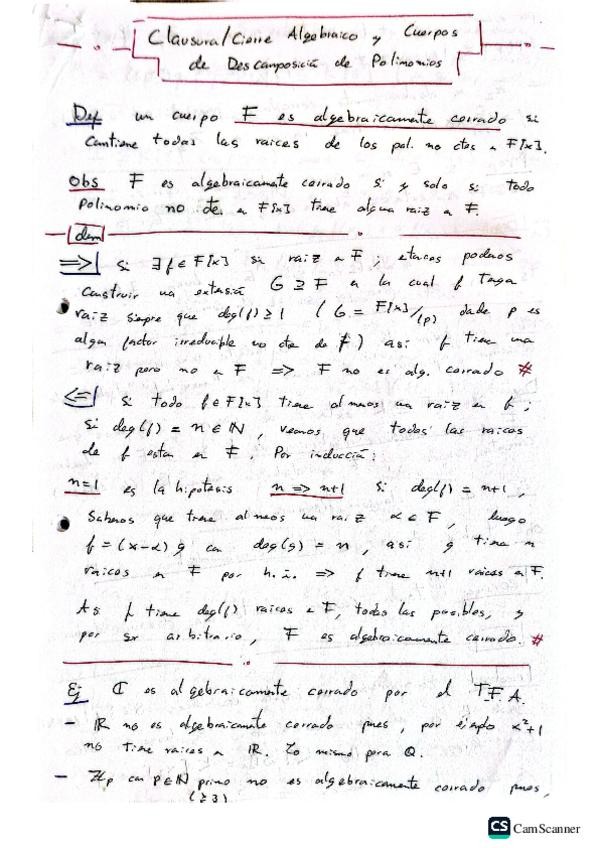 Clausura/Cierre Algebraico y Cuerpos
de Descomposición de Polinomios
Def un cuerpo F es algebraicamente cerrado si
contiene todas las raices de los pol. no ctes a F[x].
Obs F es algebraicamente cerrado si y solo si todo
Polinomio no cte. a F[x] tiene alguna raiz a F.
dem
=>| Si ∃f∈F[x] sin raiz a F; entonces podemos
construir una extensió G ⊇ F a la cual f tenga
raiz siempre que deg(f)≥1 (G = F[x]/(p) donde p es
algun factor irreducible no cte de f) asi f tiene una
raiz pero no a F => F no es alg. cerrado #
<=| Si todo f∈F[x] tiene al menos una raiz en F;
Si deg(f) = n∈ℕ, veamos que todas las raices
de f estan en F. Por inducció:
n=1 es la hipotesis n => n+1 Si deg(f) = n+1,
Sabemos que tiene al menos una raiz α∈F, luego
f=(x-α)g con deg(g) = n, asi g tiene n
raices en F por h.i. => f tiene n+1 raices a F.
Asi f tiene deg(f) raices a F, todas las posibles, y
por ser arbitrario, F es algebraicamente cerrado. #
Ej ℂ es algebraicamente cerrado por el TFA.
- ℝ no es algebraicamente cerrado pues, por ejemplo x²+1
no tiene raices a ℝ. Lo mismo para ℚ.
- ℤp con p∈ℕ primo no es algebraicamente cerrado pues,
(≥3)
CS CamScanner